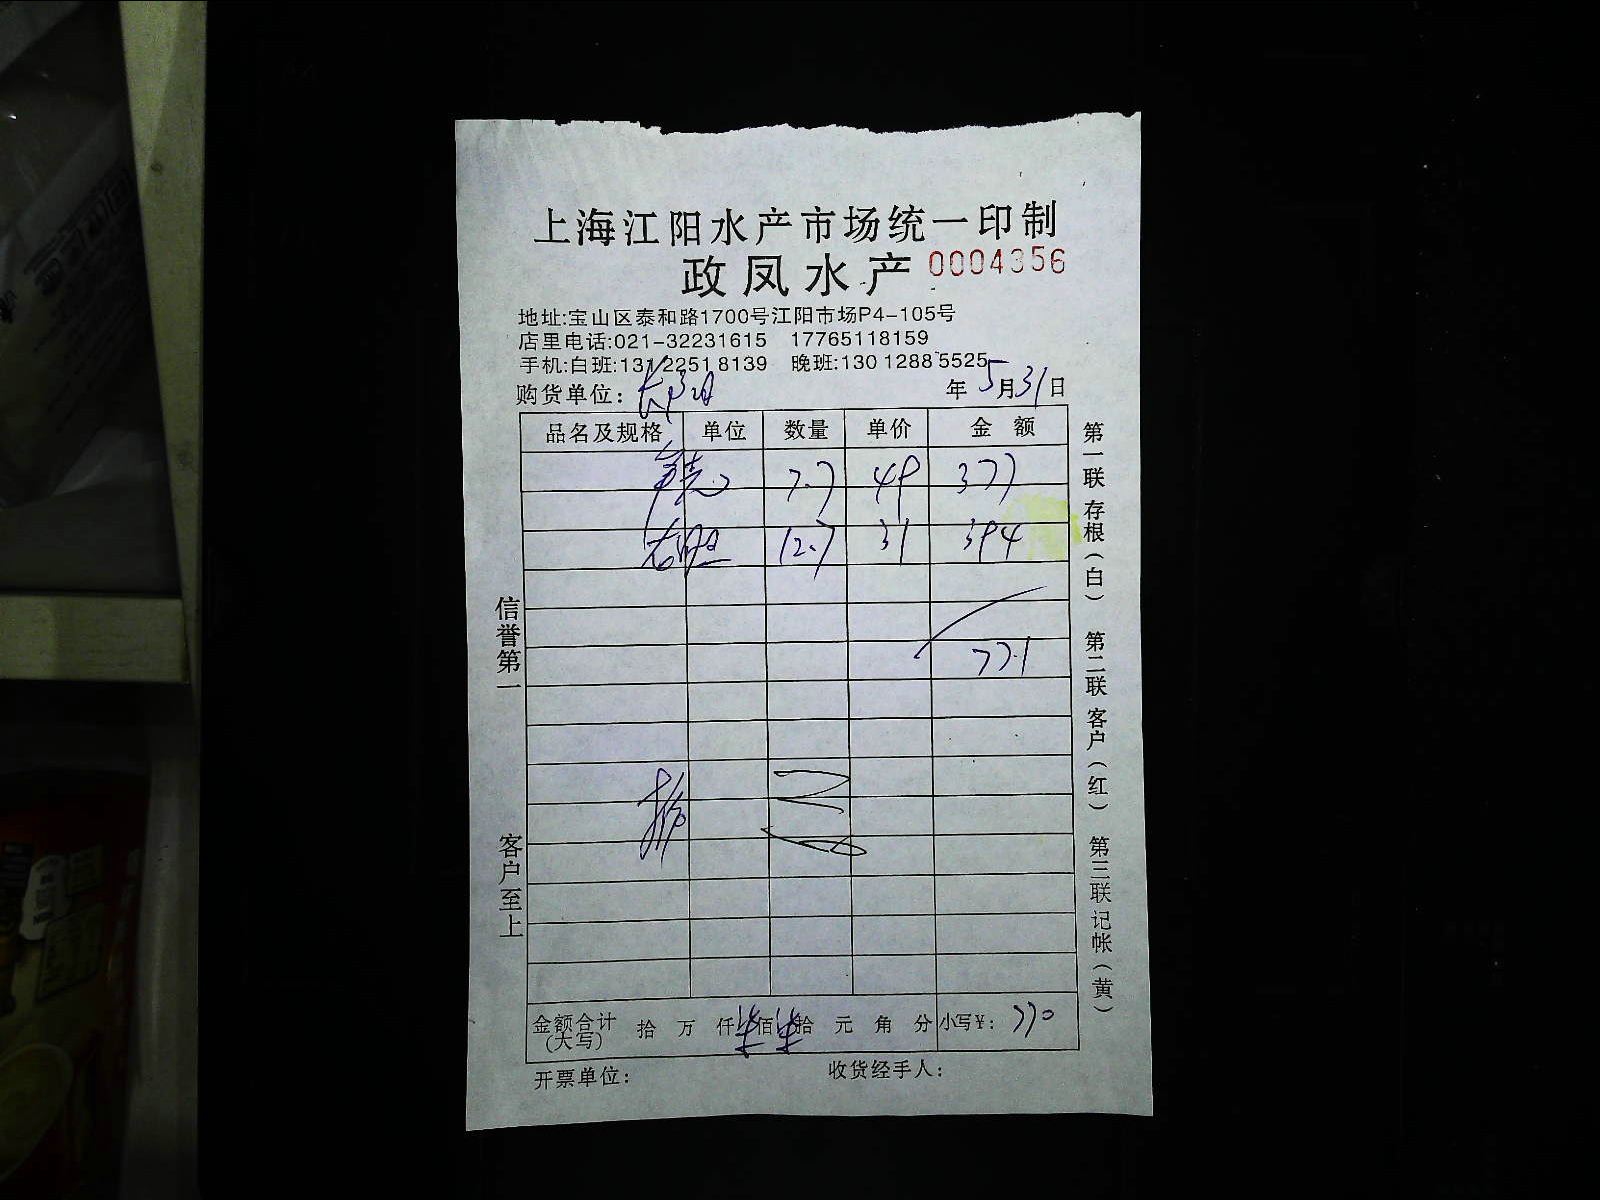 上海江阳水产市场统一印制
政凤水产 0004356
地址:宝山区泰和路1700号江阳市场P4-105号
店里电话:021-32231615 17765118159
手机:白班:131 2251 8139 晚班:130 1288 5525
购货单位: 年5月31日
品名及规格 单位 数量 单价 金额
7.7 49 377
12.7 31 394
771
金额合计(大写) 拾 万 仟 佰 拾 元 角 分 小写¥: 770
开票单位: 收货经手人:
信誉第一 客户至上
第一联存根(白) 第二联客户(红) 第三联记帐(黄)